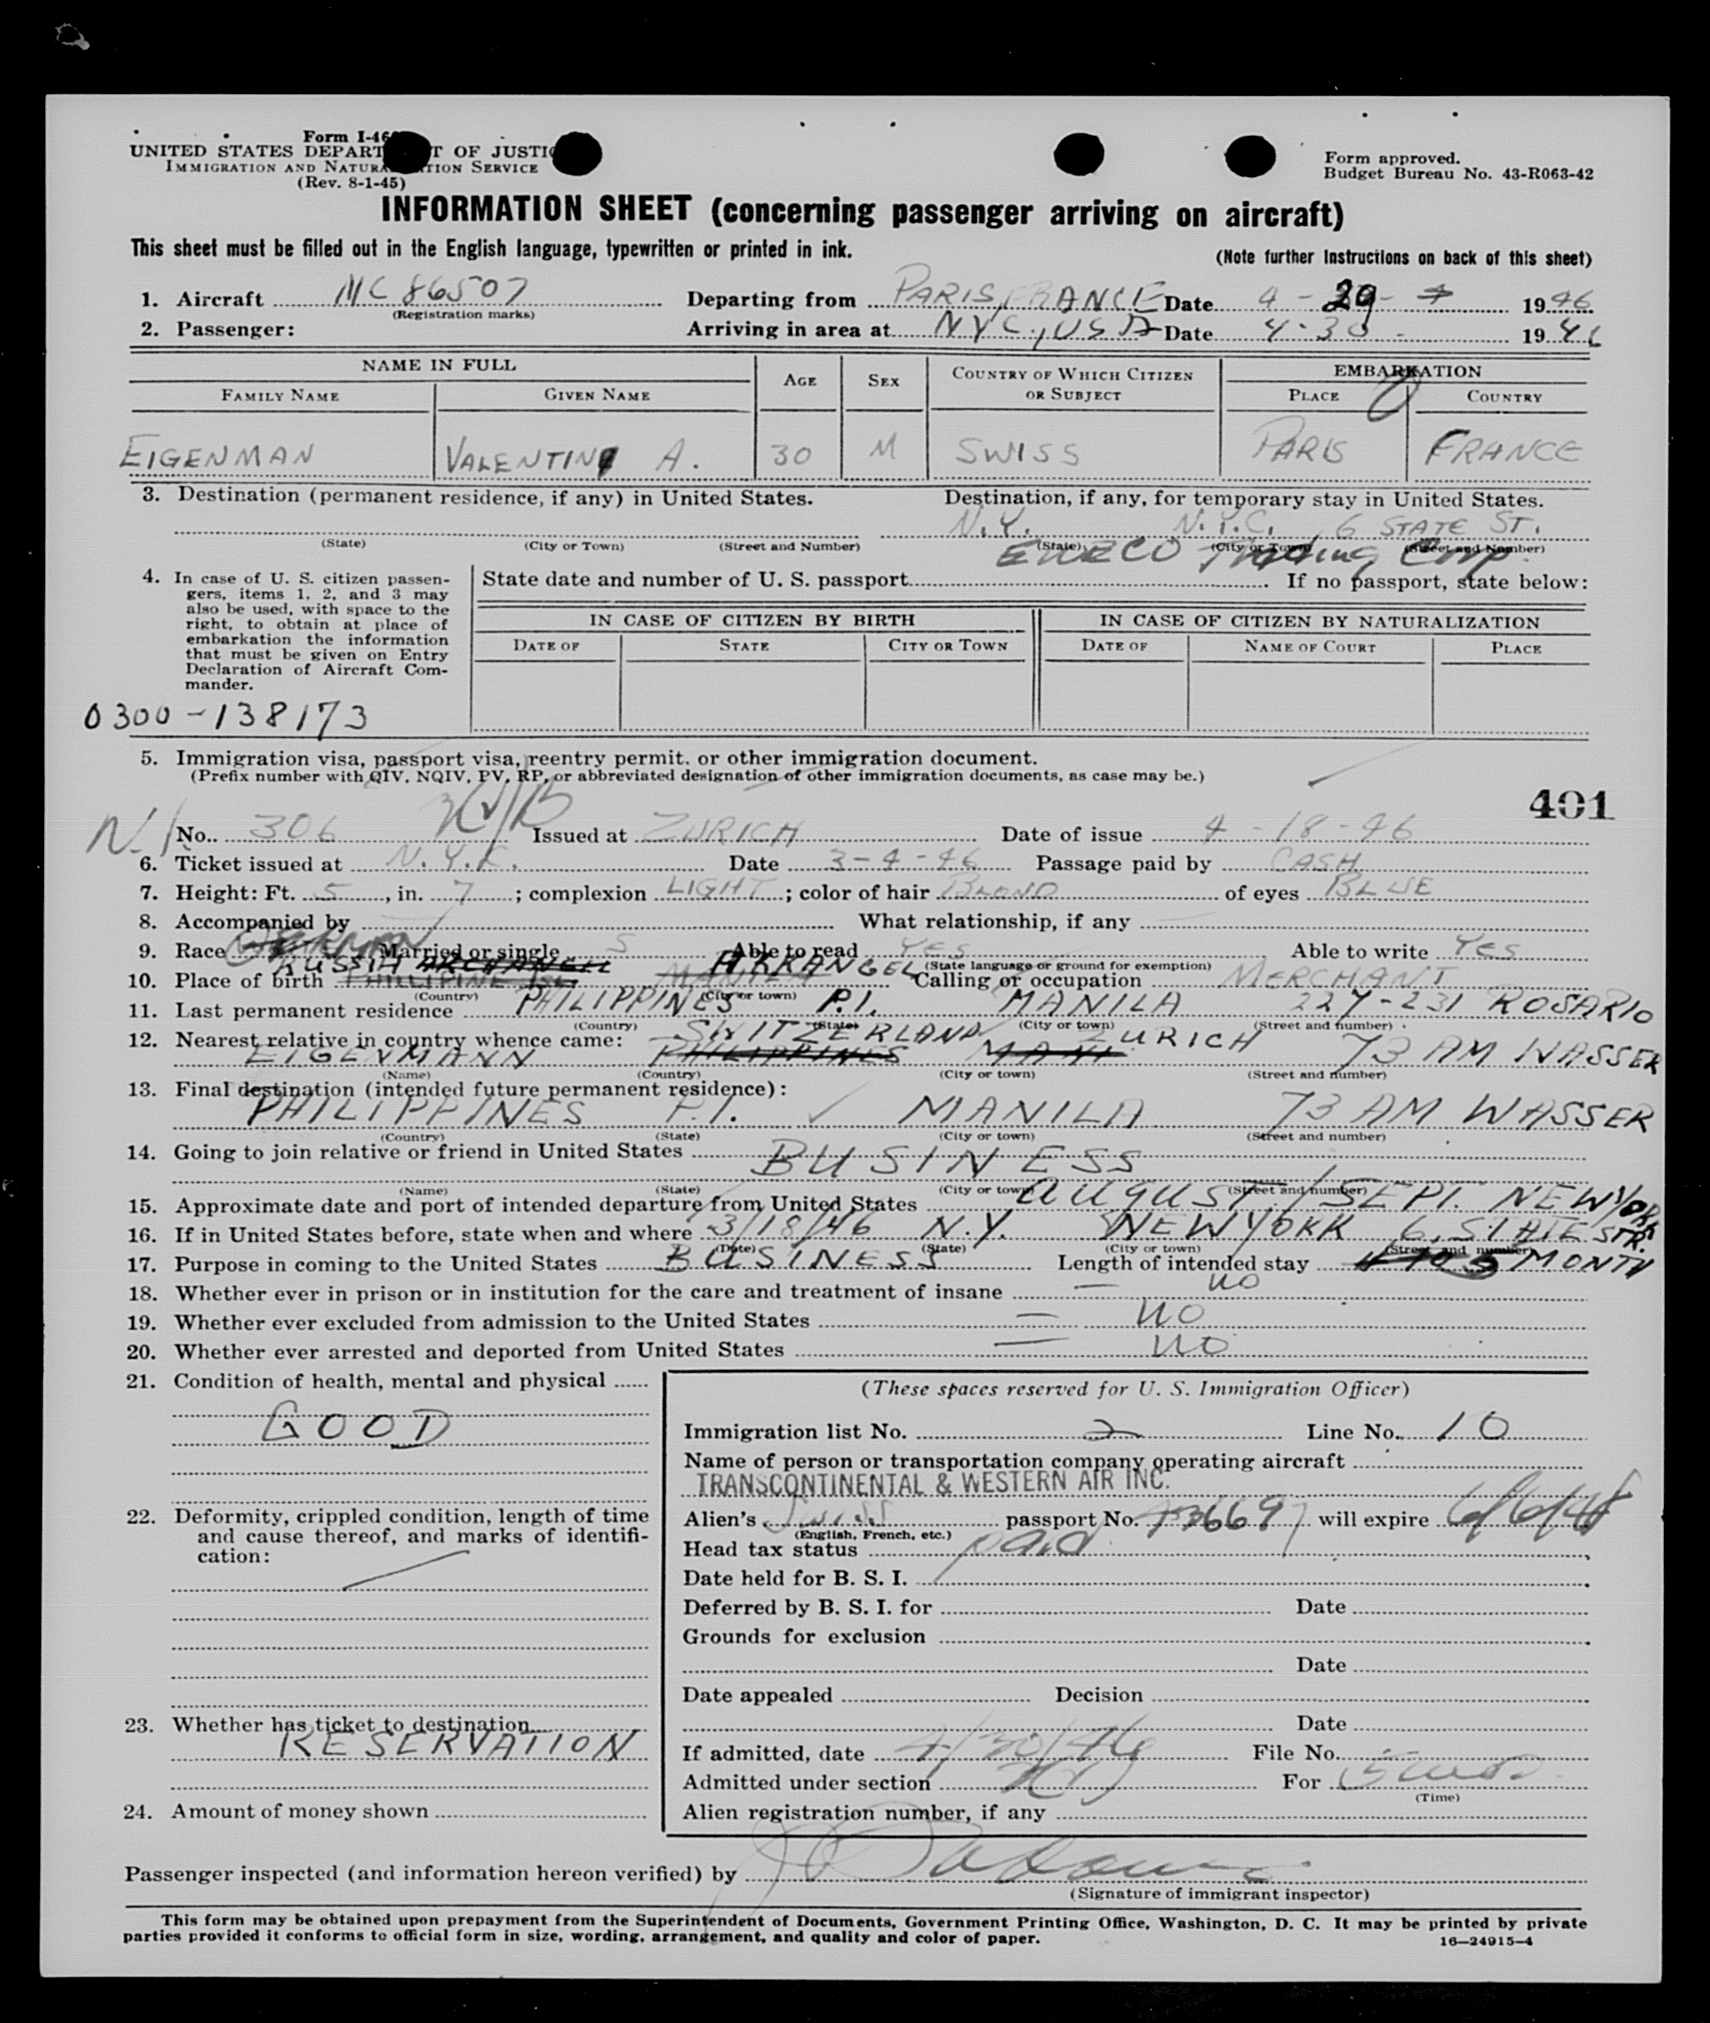 Form I-46
UNITED STATES DEPART T OF JUSTI
IMMIGRATION AND NATURA TION SERVICE
(Rev. 8-1-45)
Form approved.
Budget Bureau No. 43-R063-42
INFORMATION SHEET (concerning passenger arriving on aircraft)
This sheet must be filled out in the English language, typewritten or printed in ink.
(Note further Instructions on back of this sheet)
1. Aircraft NC 86507 Departing from PARIS, FRANCE Date 4-29- 1946
(Registration marks)
2. Passenger: Arriving in area at NYC, USA Date 4-30- 1946
NAME IN FULL AGE SEX COUNTRY OF WHICH CITIZEN OR SUBJECT EMBARKATION
FAMILY NAME GIVEN NAME PLACE COUNTRY
EIGENMAN VALENTIN A. 30 M SWISS PARIS FRANCE
3. Destination (permanent residence, if any) in United States. Destination, if any, for temporary stay in United States.
N.Y. N.Y.C. 6 STATE ST.
(State) (City or Town) (Street and Number) (State) (City or Town) (Street and Number)
Trading Corp.
4. In case of U. S. citizen passen-
gers, items 1, 2, and 3 may
also be used, with space to the
right, to obtain at place of
embarkation the information
that must be given on Entry
Declaration of Aircraft Com-
mander.
State date and number of U. S. passport If no passport, state below:
IN CASE OF CITIZEN BY BIRTH IN CASE OF CITIZEN BY NATURALIZATION
DATE OF STATE CITY OR TOWN DATE OF NAME OF COURT PLACE
0300-138173
5. Immigration visa, passport visa, reentry permit, or other immigration document.
(Prefix number with QIV, NQIV, PV, RP, or abbreviated designation of other immigration documents, as case may be.)
401
No. 306 Issued at ZURICH Date of issue 4-18-46
6. Ticket issued at N.Y.C. Date 3-4-46 Passage paid by CASH
7. Height: Ft. 5, in. 7; complexion LIGHT; color of hair BLOND of eyes BLUE
8. Accompanied by What relationship, if any
9. Race GERMAN Married or single S Able to read YES Able to write YES
(State language or ground for exemption)
RUSSIA ARCHANGEL ARKANGEL
10. Place of birth PHILIPPINE MANILA Calling or occupation MERCHANT
(Country) (City or town)
11. Last permanent residence PHILIPPINES P.I. MANILA 227-231 ROSARIO
(Country) (State) (City or town) (Street and number)
12. Nearest relative in country whence came: SWITZERLAND ZURICH
EIGENMANN PHILIPPINES MANI 73 AM WASSER
(Name) (Country) (City or town) (Street and number)
13. Final destination (intended future permanent residence):
PHILIPPINES P.I. MANILA 73 AM WASSER
(Country) (State) (City or town) (Street and number)
14. Going to join relative or friend in United States BUSINESS
(Name) (State) (City or town) (Street and number)
15. Approximate date and port of intended departure from United States AUGUST/SEPT. NEW YORK
16. If in United States before, state when and where 3/18/46 N.Y. NEW YORK 6, STATE STR.
(Date) (State) (City or town) (Street and number)
17. Purpose in coming to the United States BUSINESS Length of intended stay 5 MONTH
18. Whether ever in prison or in institution for the care and treatment of insane — NO
19. Whether ever excluded from admission to the United States — NO
20. Whether ever arrested and deported from United States — NO
21. Condition of health, mental and physical
GOOD
22. Deformity, crippled condition, length of time
and cause thereof, and marks of identifi-
cation:
23. Whether has ticket to destination
RESERVATION
24. Amount of money shown
(These spaces reserved for U. S. Immigration Officer)
Immigration list No. 2 Line No. 10
Name of person or transportation company operating aircraft
TRANSCONTINENTAL & WESTERN AIR INC.
Alien's Swiss passport No. will expire 6/6/48
(English, French, etc.)
Head tax status paid
Date held for B. S. I.
Deferred by B. S. I. for Date
Grounds for exclusion
Date
Date appealed Decision
Date
If admitted, date 4/30/46 File No.
Admitted under section For
(Time)
Alien registration number, if any
Passenger inspected (and information hereon verified) by
(Signature of immigrant inspector)
This form may be obtained upon prepayment from the Superintendent of Documents, Government Printing Office, Washington, D. C. It may be printed by private
parties provided it conforms to official form in size, wording, arrangement, and quality and color of paper.
16—24915-4